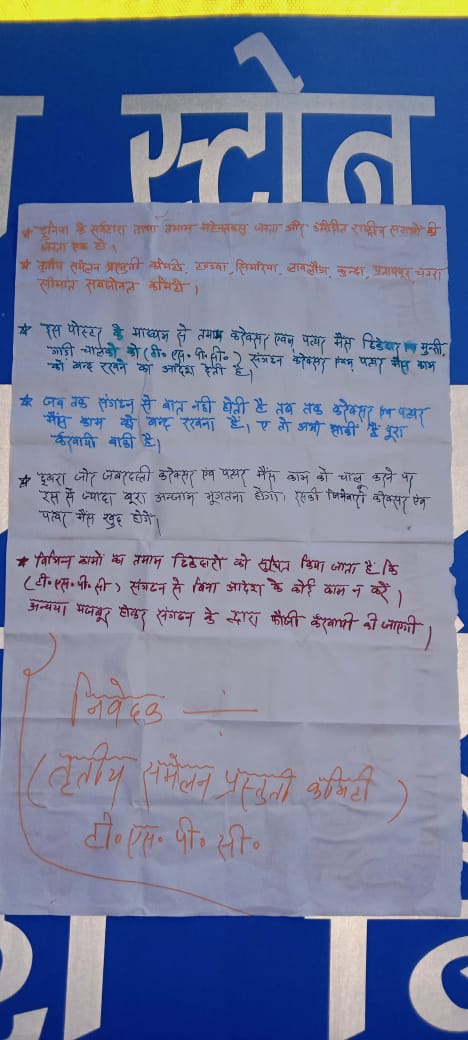 स्टोन
* दुनिया के सर्वहारा तथा तमाम मेहनतकश जनता और उत्पीड़ित राष्ट्रीय जनताओं की
एकता एक हो।
* तृतीय समेलन प्रस्तुती कमिटी, टण्डवा, सिमरिया, लावालौंग, कुन्दा, प्रतापपुर, चतरा
सीमांत सबजोनल कमिटी।
* इस पोस्टर के माध्यम से तमाम करेक्सर एवम पत्थर मैंस ठिकेदार मुन्सी,
गाडी चालको को (टी॰ एस॰ पी॰ सी॰) संगठन करेक्सर एवम पत्थर मैंस काम
को बन्द रखने का आदेश देती है।
* जब तक संगठन से बात नही होती है तब तक करेक्सर एवं पत्थर
मैंस काम को बन्द रखना है। ए तो अभी झाकी है पूरा
कैरवायी बाकी है।
* दुबारा जोर जबरदस्ती करेक्सर एवं पत्थर मैंस काम को चालू करने पर
इस से ज्यादा बूरा अन्जाम भूगतना होगा। इसकी जिमेवारी करेक्सर एवं
पत्थर मैंस खुद होगे।
* विभिन्न कामों का तमाम ठिकेदारो को सूचित किया जाता है कि
(टी॰ एस॰ पी॰ सी॰) संगठन से बिना आदेश के कोई काम न करें।
अन्यथा मजबूर होकर संगठन के द्वारा फौजी कैरवायी की जाएगी।
निवेदक —
(तृतीय समेलन प्रस्तुती कमिटी)
टी॰ एस॰ पी॰ सी॰